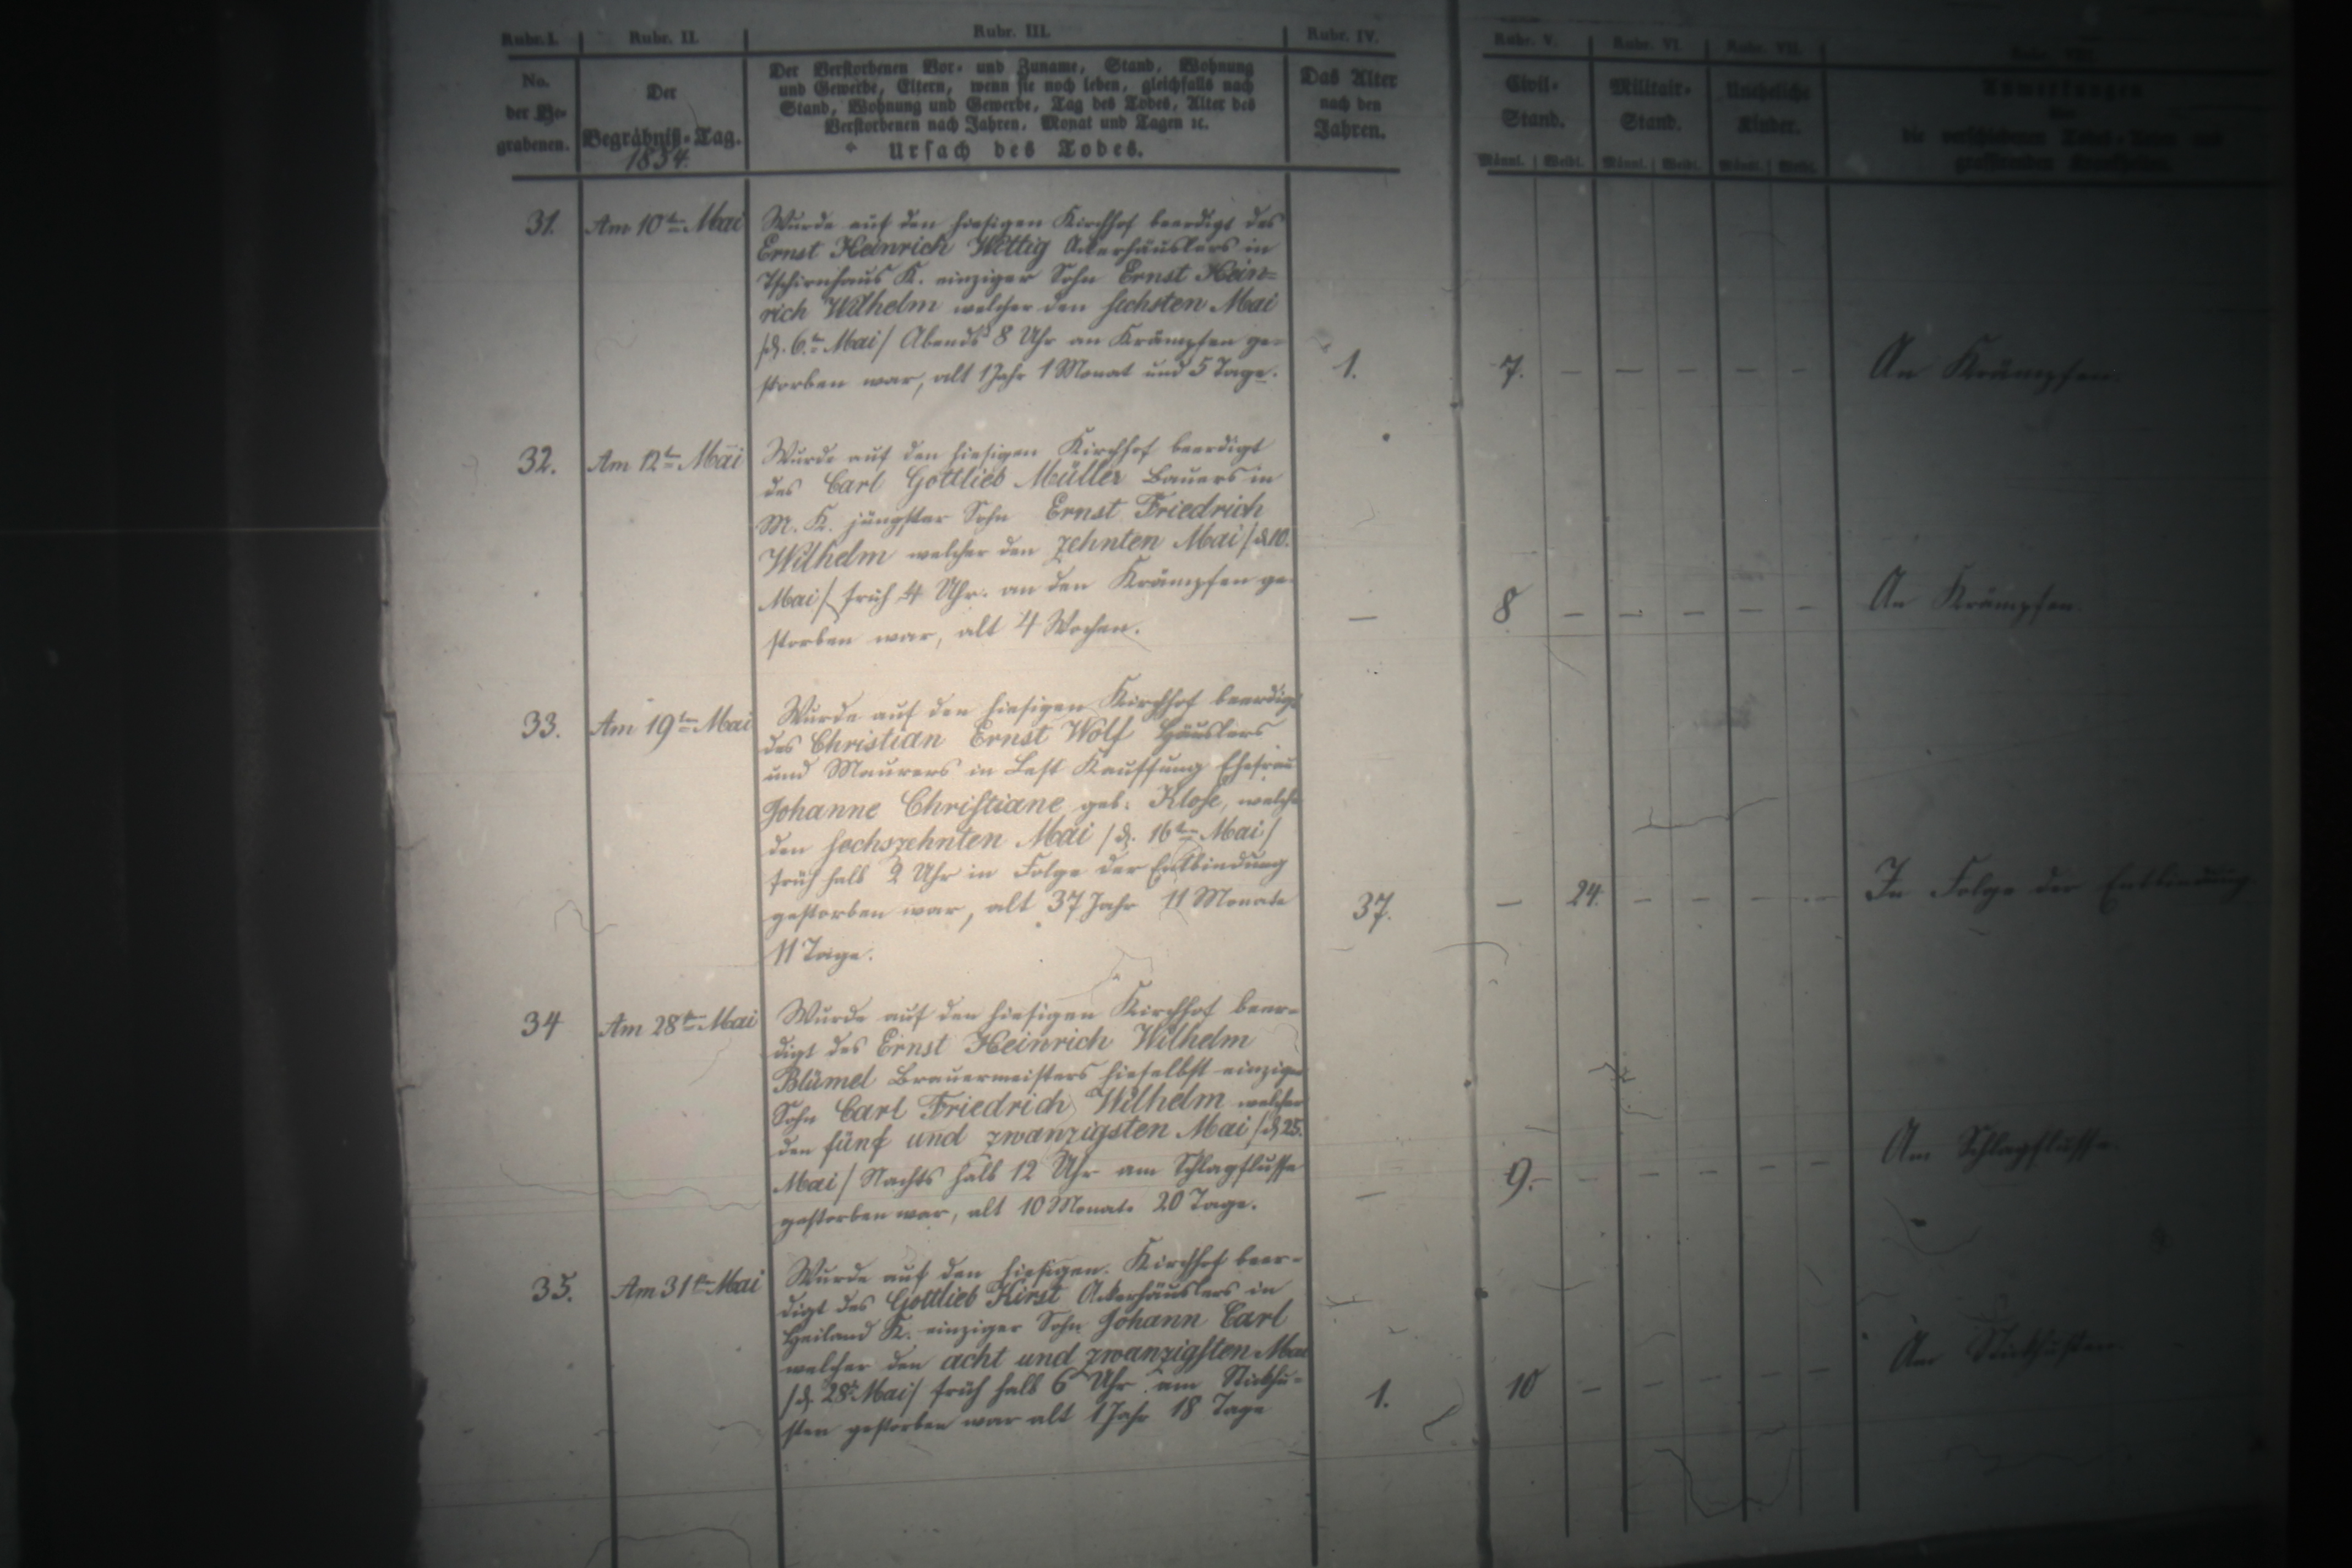 Rubr. I. Rubr. II. Rubr. III. Rubr. IV. Rubr. V. Rubr. VI. Rubr. VII. Rubr. VIII.
No.
der Be-
grabenen.
Der
Begräbniß-Tag.
1834.
Der Verstorbenen Vor- und Zuname, Stand, Wohnung
und Gewerbe, Eltern, wenn sie noch leben, gleichfalls nach
Stand, Wohnung und Gewerbe, Tag des Todes, Alter des
Verstorbenen nach Jahren, Monat und Tagen ꝛc.
Ursach des Todes.
Das Alter
nach den
Jahren.
Civil-
Stand.
Männl. Weibl.
Militair-
Stand.
Männl. Weibl.
Uneheliche
Kinder.
Männl. Weibl.
Anmerkungen
die verschiedenen Todes-Arten und
grassirenden Krankheiten.
31. Am 10ten Mai
Wurde auf den hiesigen Kirchhof beerdigt des
Ernst Heinrich Wittig Ackerhäuslers in
Tschirnhaus K. einziger Sohn Ernst Hein=
rich Wilhelm welcher den sechsten Mai
/d. 6.ten Mai/ Abends 8 Uhr an Krämpfen ge-
storben war, alt 1 Jahr 1 Monat und 5 Tage.
1. 7. — — — — — An Krämpfen.
32. Am 12ten Mai
Wurde auf den hiesigen Kirchhof beerdigt
des Carl Gottlieb Müller Bauers in
M. K. jüngster Sohn Ernst Friedrich
Wilhelm welcher den zehnten Mai /d. 10.
Mai/ früh 4 Uhr an den Krämpfen ge-
storben war, alt 4 Wochen.
— 8. — — — — — An Krämpfen.
33. Am 19ten Mai
Wurde auf den hiesigen Kirchhof beerdigt
des Christian Ernst Wolf Häuslers
und Maurers in Lest Kauffung Ehefrau
Johanne Christiane geb. Klose, welche
den sechszehnten Mai /d. 16ten Mai/
früh halb 2 Uhr in Folge der Entbindung
gestorben war, alt 37 Jahr 11 Monate
11 Tage.
37. — 24. — — — — In Folge der Entbindung
34 Am 28ten Mai
Wurde auf den hiesigen Kirchhof beer-
digt des Ernst Heinrich Wilhelm
Blümel Brauermeisters hieselbst einziger
Sohn Carl Friedrich Wilhelm welcher
den fünf und zwanzigsten Mai /d. 25.
Mai/ Nachts halb 12 Uhr am Schlagflusse
gestorben war, alt 10 Monate 20 Tage.
— 9. — — — — — Am Schlagflusse.
35. Am 31ten Mai
Wurde auf den hiesigen Kirchhof beer-
digt des Gottlieb Kirst Ackerhäuslers in
Heiland K. einziger Sohn Johann Carl
welcher den acht und zwanzigsten Mai
/d. 28. Mai/ früh halb 6 Uhr am Stickhu-
sten gestorben war alt 1 Jahr 18 Tage
1. 10 — — — — — Am Stickhusten.